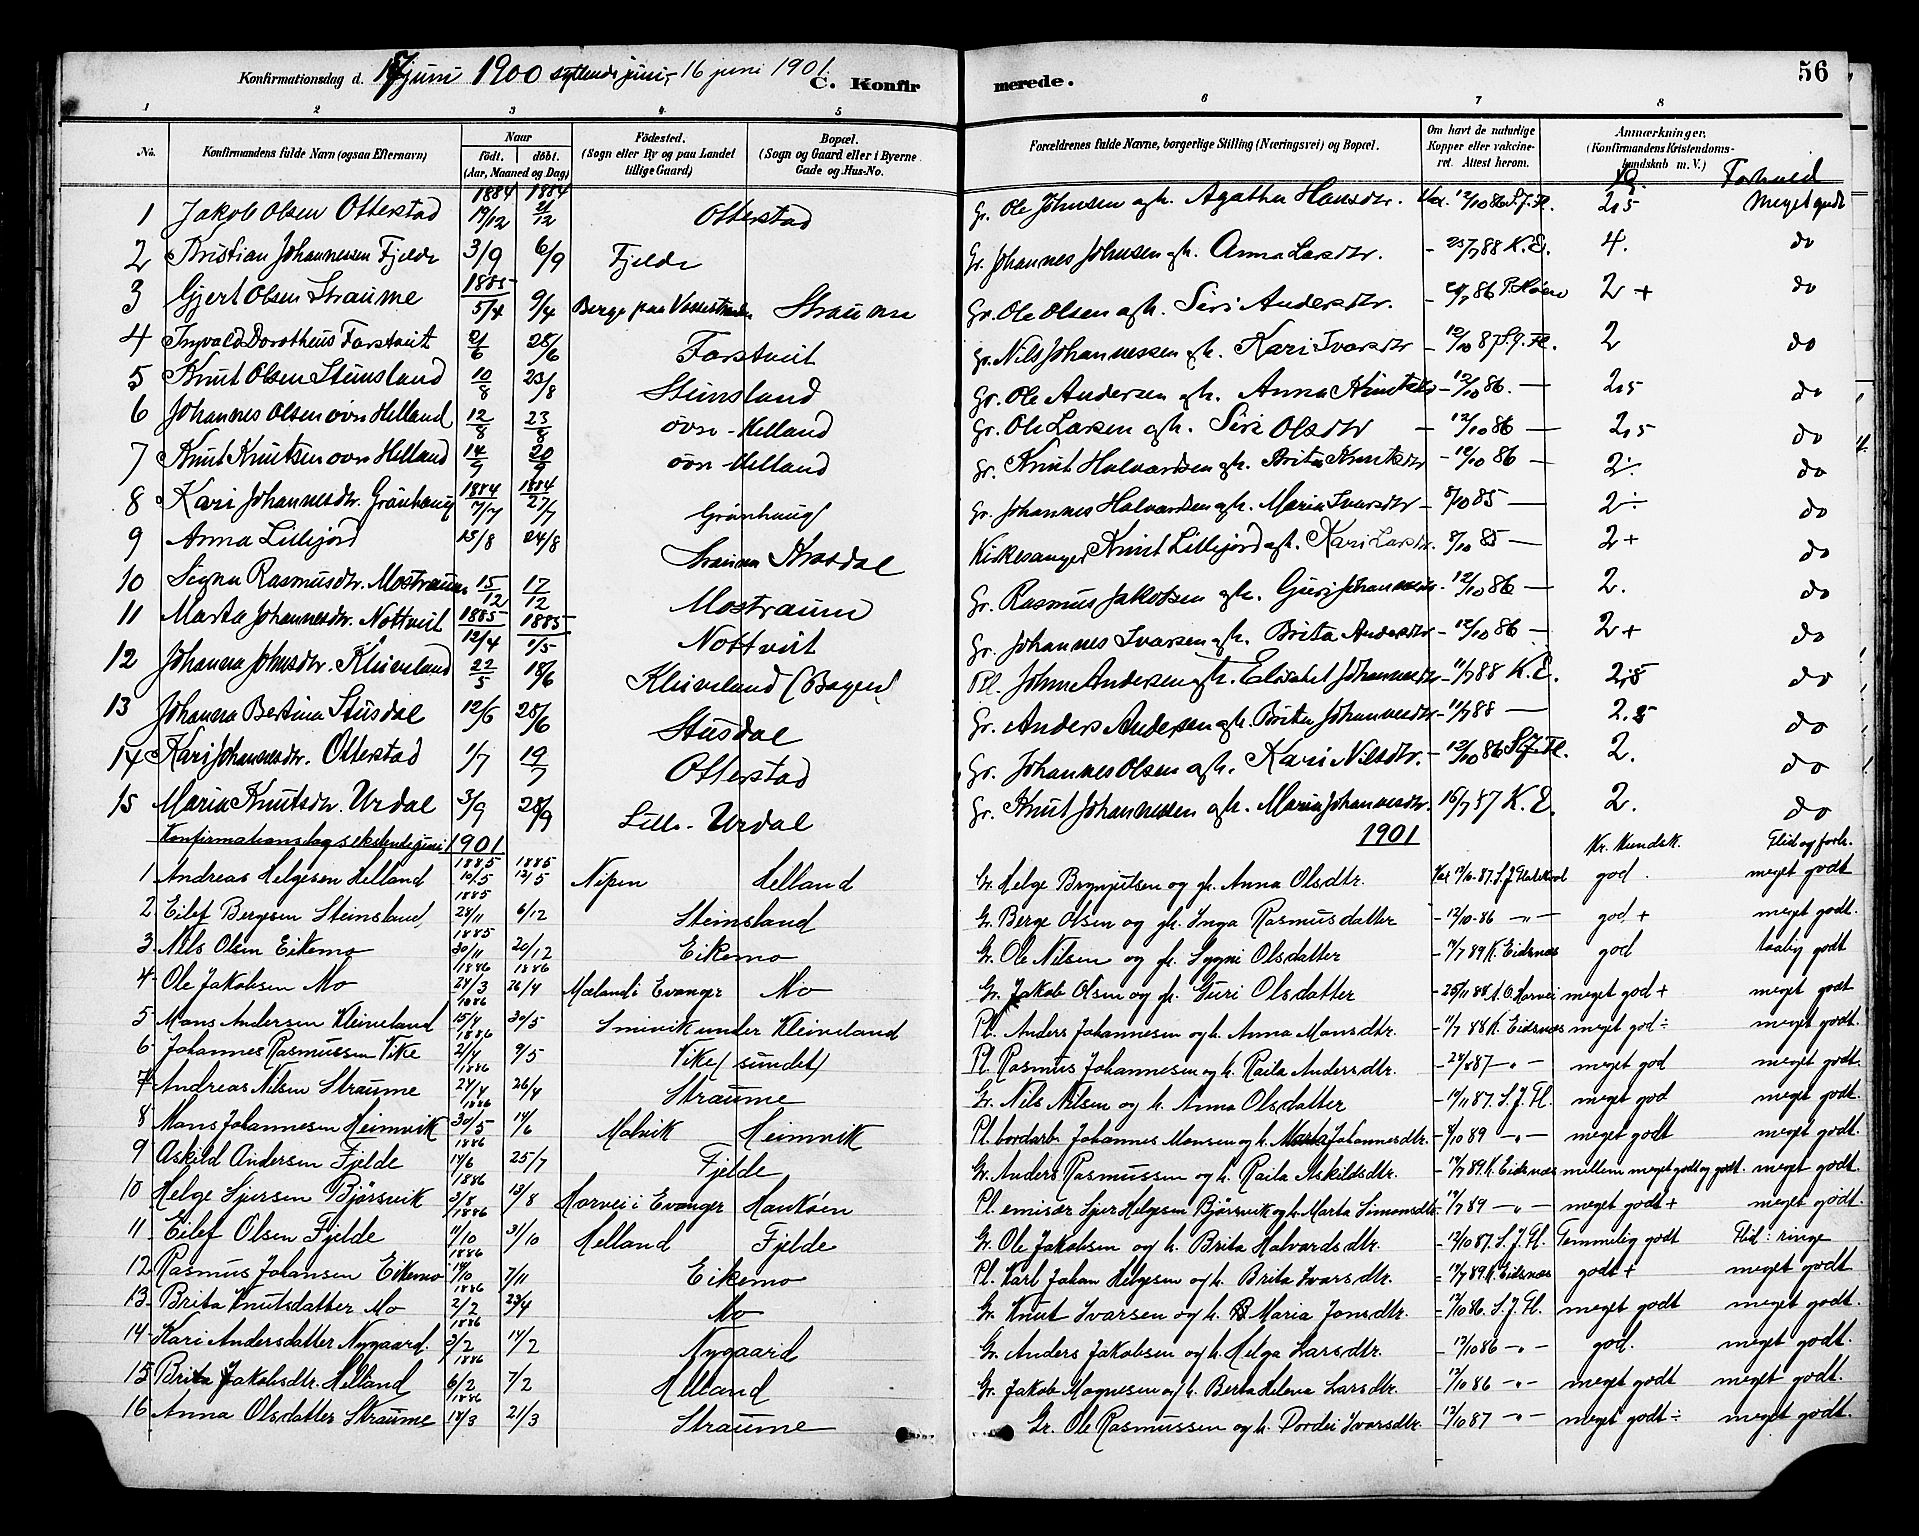 Konfirmationsdag d. 17 juni 1900 syttende juni, 16 juni 1901. C. Konfirmerede. 56
1 2 3 4 5 6 7 8
No. Konfirmandens fulde Navn (ogsaa Efternavn) Naar födt. döbt. (Aar, Maaned og Dag) Födested. (Sogn eller By og paa Landet tillige Gaard) Bopæl. (Sogn og Gaard eller i Byerne Gade og Hus-No. Forældrenes fulde Navne, borgerlige Stilling (Næringsvei) og Bopæl. Om havt de naturlige Kopper eller vakcineret. Attest herom. Anmærkninger. (Konfirmandens Kristendomskundskab m. V.) Forhold
1 Jakob Olsen Otterstad 1884 19/12 1884 21/12 Otterstad Gr. Ole Johnsen og h. Agatha Hansdtr. Vac. 12/10 86 S.J.Fl. 2,5 Meget godt
2 Kristian Johannessen Fjelde 3/9 6/9 Fjelde Gr. Johannes Johnsen og h. Anna Larsdtr. - 23/7 88 K.E. 4. do
3 Gjert Olsen Straume 1885 5/4 9/4 Berge paa Vossestranden Straume Gr. Ole Olsen og h. Siri Andersdtr. 2+ do
4 Ingvald Dorotheus Farstveit 21/6 28/6 Farstveit Gr. Nils Johannessen og h. Kari Ivarsdtr - 12/10 87 S.J.Fl. 2 do
5 Knut Olsen Steinsland 10/8 23/8 Steinsland Gr. Ole Andersen og h. Anna Knutsdtr - 12/10 86. — 2,5 do
6 Johannes Olsen øvn Helland 12/8 23/8 øvn-Helland Gr. Ole Larsen og h. Siri Olsdtr - 12/10 86 — 2,5 do
7 Knut Knutsen øvn Helland 14/9 20/9 øvn-Helland Gr. Knut Halvardsen og h. Brita Knutsdtr - 12/10 86 — 2÷ do
8 Kari Johannesdtr. Grönhaug 1884 17/7 1884 27/7 Grönhaug Gr. Johannes Halvardsen og h. Maria Ivarsdtr - 8/10 85 — 2÷ do
9 Anna Lillejord 15/8 24/8 Straume Kirkesanger Knut Lillejord og h. Kari Larsdtr. 8/10 85 — 2+ do
10 Signe Rasmusdtr. Mostraum 15/12 17/12 Mostraum Gr. Rasmus Jakobsen og h. Guri Johannesdtr - 12/10 86 — 2. do
11 Marta Johannesdtr. Nottveit 1885 12/4 1885 1/5 Nottveit Gr. Johannes Ivarsen og h. Brita Andersdtr - 12/10 86 — 2+ do
12 Johanna Johnsdtr. Kleiveland 22/5 18/6 Kleiveland (Bøgen) Pl. John Andersen og h. Elisabet Johannesdtr - 11/7 88 K.E. 2,5 do
13 Johanna Bertina Stusdal 12/6 28/6 Stusdal Gr. Anders Andersen og h. Brita Johannesdtr - 11/7 88 — 2.5 do
14 Kari Johannesdtr. Otterstad 1/7 19/7 Otterstad Gr. Johannes Olsen og h. Kari Nilsdtr. - 12/10 86 S.J.Fl. 2. do
15 Maria Knutsdtr. Urdal 3/9 28/9 Lille-Urdal Gr. Knut Johannessen og h. Maria Johannesdtr. 16/7 87 K.E. 2. do
Konfirmationsdag sekstende juni 1901 1901 Kr. Kundsk. Flid og forh.
1 Andreas Helgesen Helland 1885 10/5 1885 12/5 Nipen Helland Gr. Helge Brynjulsen og h. Anna Olsdtr. god. meget godt
2. Eilef Bergesen Steinsland, 1885 24/11 6/12 Steinsland Gr. Berge Olsen og h. Inga Rasmusdatter - 12/10-86 -"- god + meget godt.
3. Nils Olsen Eikemo 1885 30/11 20/12 Eikemo Gr. Ole Nilsen og h. Sygni Olsdatter - 11/7 89 K. Eidsnæs god godt
4- Ole Jakobsen Mo 1886 24/3 1886 26/4 Mæland i Evanger Mo Gr. Jakob Olsen og h. Guri Olsdatter - 25/11 88 A.O. Horvei meget god + meget godt
5 Mons Andersen Kleiveland 1886 15/4 30/5 Smivik under Kleiveland Pl. Anders Johannesen og h. Anna Monsdtr. - 11/7 88 K. Eidsnæs meget god ÷ meget godt.
6- Johannes Rasmussen Vike 1886 2/4 9/5 Vike (sundet) Pl. Rasmus Johannesen og h. Raila Andersdtr. -"- meget god meget godt
7 Andreas Nilsen Straume 1886 24/4 26/4 Straume Gr. Nils Nilsen og h. Anna Olsdatter - 14/11 87. S.J. Fl. meget god meget godt.
8 Mons Johannesen Heimvik 1886 30/5 14/6 Molvik Heimvik Pl. bordarb. Johannes Monsen og h. Marta Johannesdtr. - 4/10 89 -"- meget godt meget godt.
9 Askild Andersen Fjelde 1886 14/6 25/7 Fjelde Gr. Anders Rasmussen og h. Raila Askildsdtr. - 17/7 89 K. Eidsnæs mellem meget godt og godt. meget godt.
10 Helge Sjursen Bjørsvik 1886 3/8 13/8 Horvei i Evanger Haukøen Pl. emisær Sjur Helgesen Bjørsvik og h. Marta Simonsdtr. - 17/7 89 -"- meget godt + meget godt.
11 Eilef Olsen Fjelde 1886 11/10 31/10 Helland Fjelde Gr. Ole Jakobsen og h. Brita Halvardsdtr. - 12/10 87. S.J. Fl. Temmelig godt Flid: ringe
12 Rasmus Johansen Eikemo 1886 14/10 7/11 Eikemo Pl. Karl Johan Helgesen og h. Brita Ivarsdtr. - 17/7 89. K. Eidsnæs godt + meget godt
13- Brita Knutsdatter Mo 1886 2/2 23/4 Mo Gr. Knut Ivarsen og h. Maria Jonsdtr. - 12/10 86. S.J. Fl. meget godt meget godt.
14- Kari Andersdatter Nygaard. 1886 3/2 14/2 Nygaard Gr. Anders Jakobsen og h. Helga Larsdtr. - 12/10 86 -"- god. meget godt.
15 Brita Jakobsdtr. Helland 1886 6/2 7/2 Helland Gr. Jakob Magnesen og h. Berta Helena Larsdtr. - 12/10 86 -"- meget godt meget godt.
16 Anna Olsdatter Straume 1886 14/3 21/3 Straume Gr. Ole Rasmussen og h. Dordei Ivarsdtr. - 12/10 87 -"- meget godt ÷ meget godt.